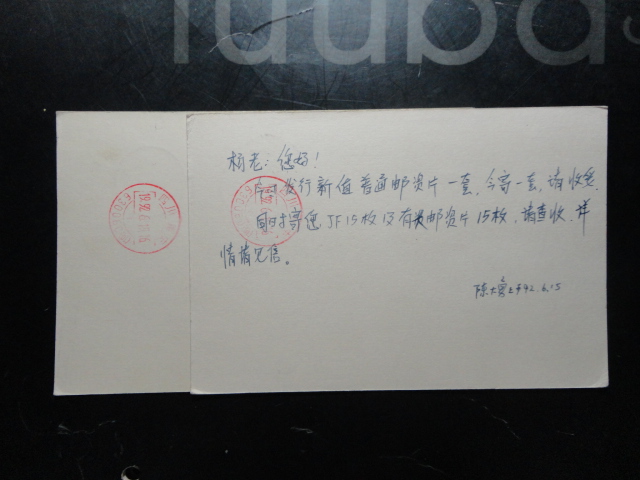 luuba
杨老：您好！
发行新值普通邮资片一套，今寄一套，请收受
同时寄您JF15枚及有奖邮资片15枚，请查收，详
情请见信。
陈大 92.6.15